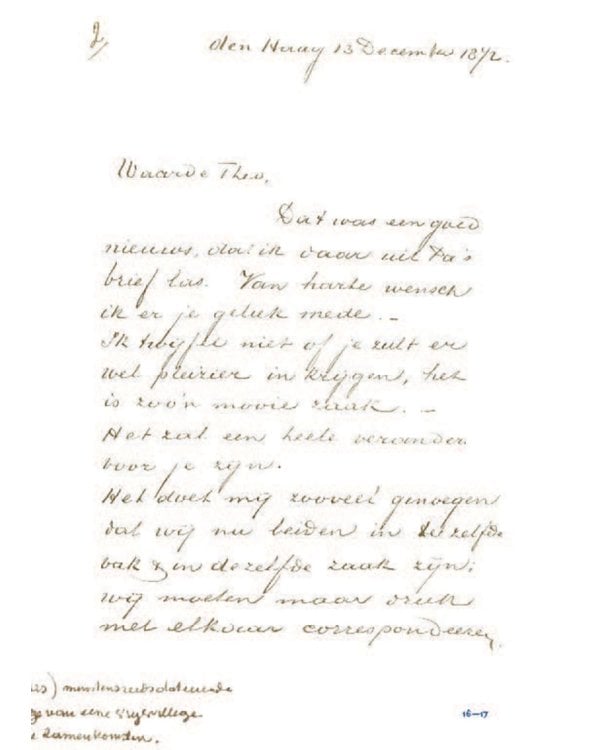 2/
den Haag 13 December 1872.
Waarde Theo,
Dat was een goed
nieuws, dat ik daar uit Pa's
brief las. Van harte wensch
ik er je geluk mede. –
Ik twijfel niet of je zult er
wel pleizier in krijgen, het
is zoo'n mooie zaak. –
Het zal een heele verander
voor je zijn.
Het doet mij zooveel genoegen
dat wij nu beiden in dezelfde
vak & in dezelfde zaak zijn;
wij moeten maar druk
met elkaar correspondeeren,
van eene
16–17